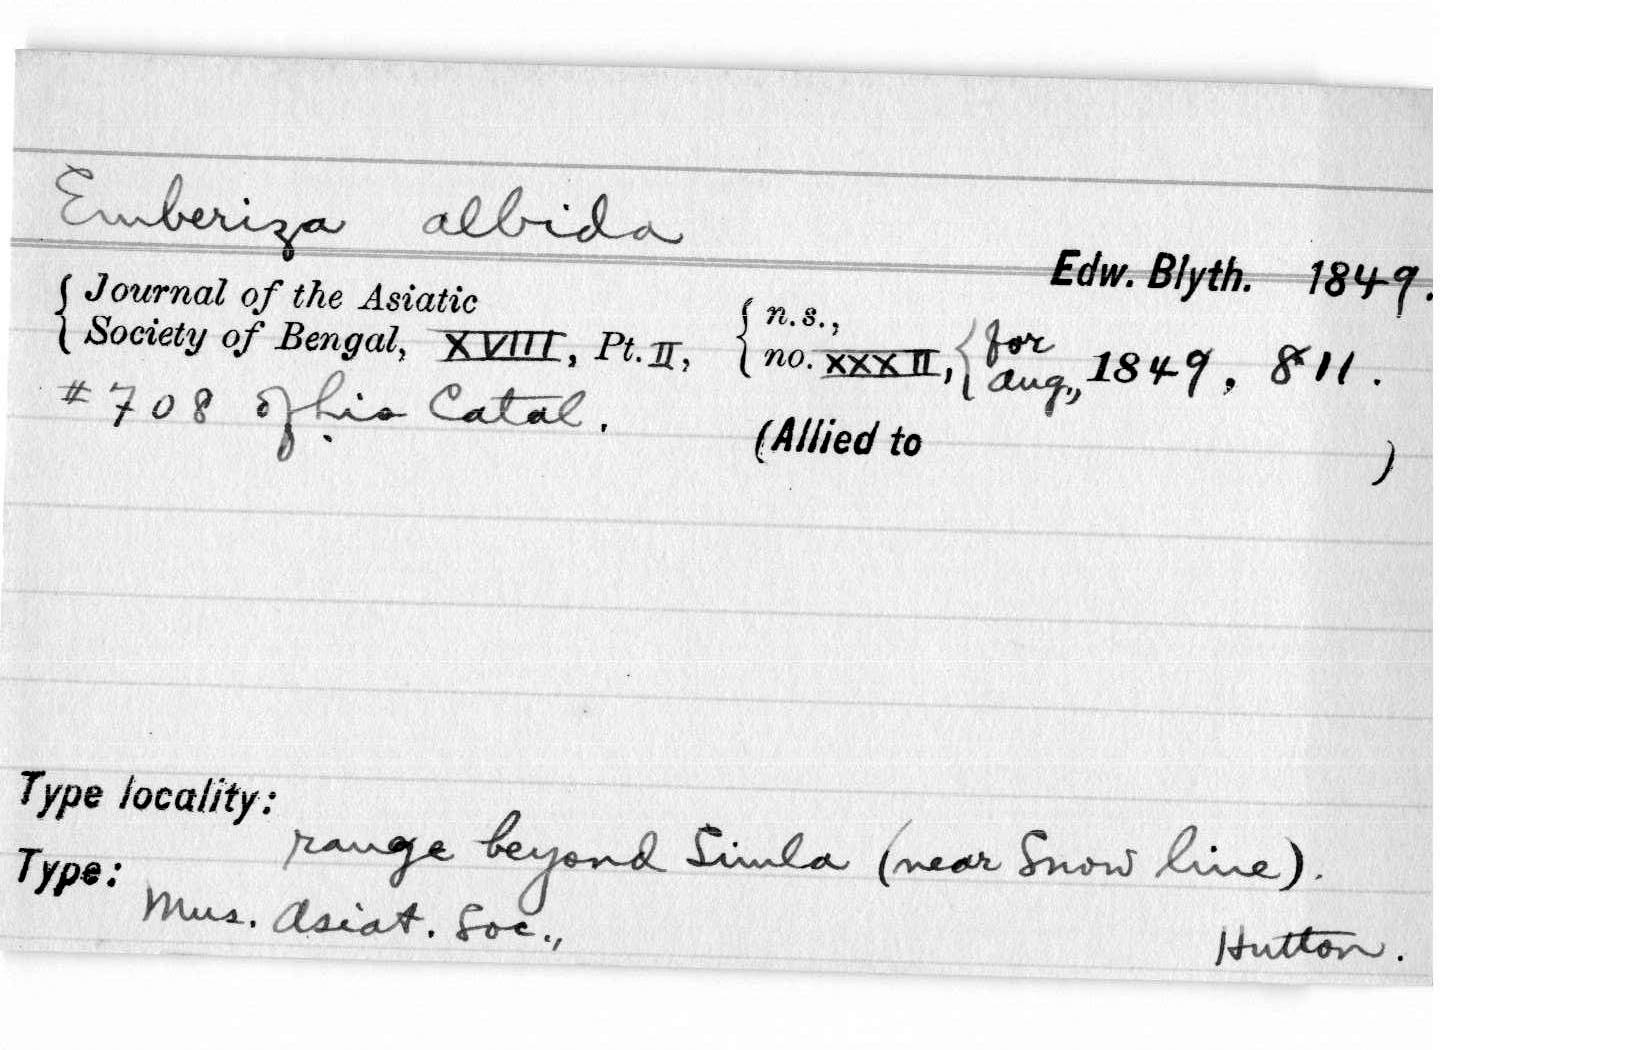 Emberiza albida
Edw. Blyth. 1849.
{ Journal of the Asiatic { n.s., { for
Society of Bengal, XVIII, Pt. II, no. XXXII, Aug., 1849, 811.
#708 of his Catal.
(Allied to )
Type locality:
range beyond Simla (near Snow line).
Type:
Mus. Asiat. Soc., Hutton.